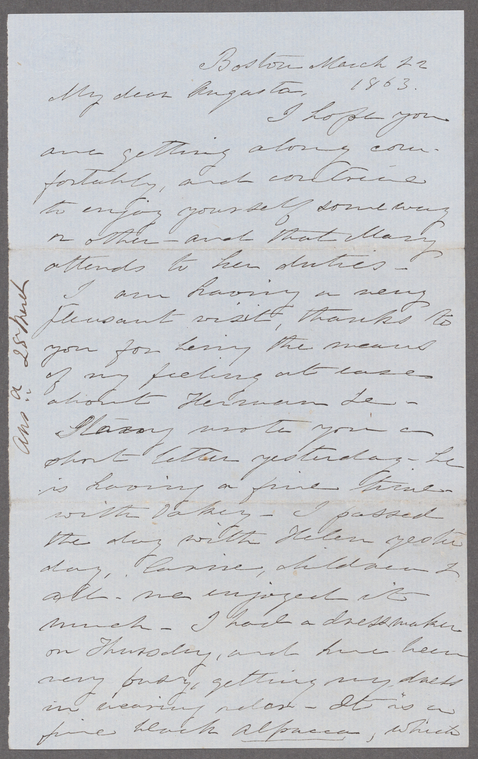 Boston March 22
1863.
My dear Augusta,
I hope you
are getting along com-
fortably, and contrive
to enjoy yourself someway
or other - and that Mary
attends to her duties -
I am having a very
pleasant visit, thanks to
you for being the means
of my feeling at ease
about Herman &c -
Harry wrote you a
short letter yesterday - he
is having a fine time
with - I passed
the day with Helen yester
day, Carrie, children &
all - we enjoyed it
much - I had a dressmaker
on Thursday, and have been
very busy, getting my dress
in wearing order - It is a
fine black alpacca, which
ans. a 28 March